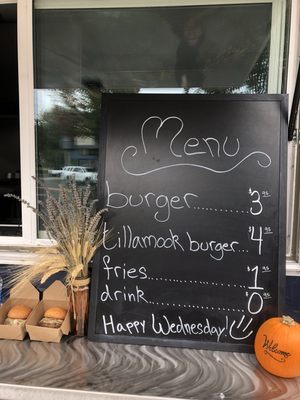 Menu
burger..............$3.95
tillamook burger...$4.95
fries......................$1.95
drink.....................$0.95
Happy Wednesday!
Welcome